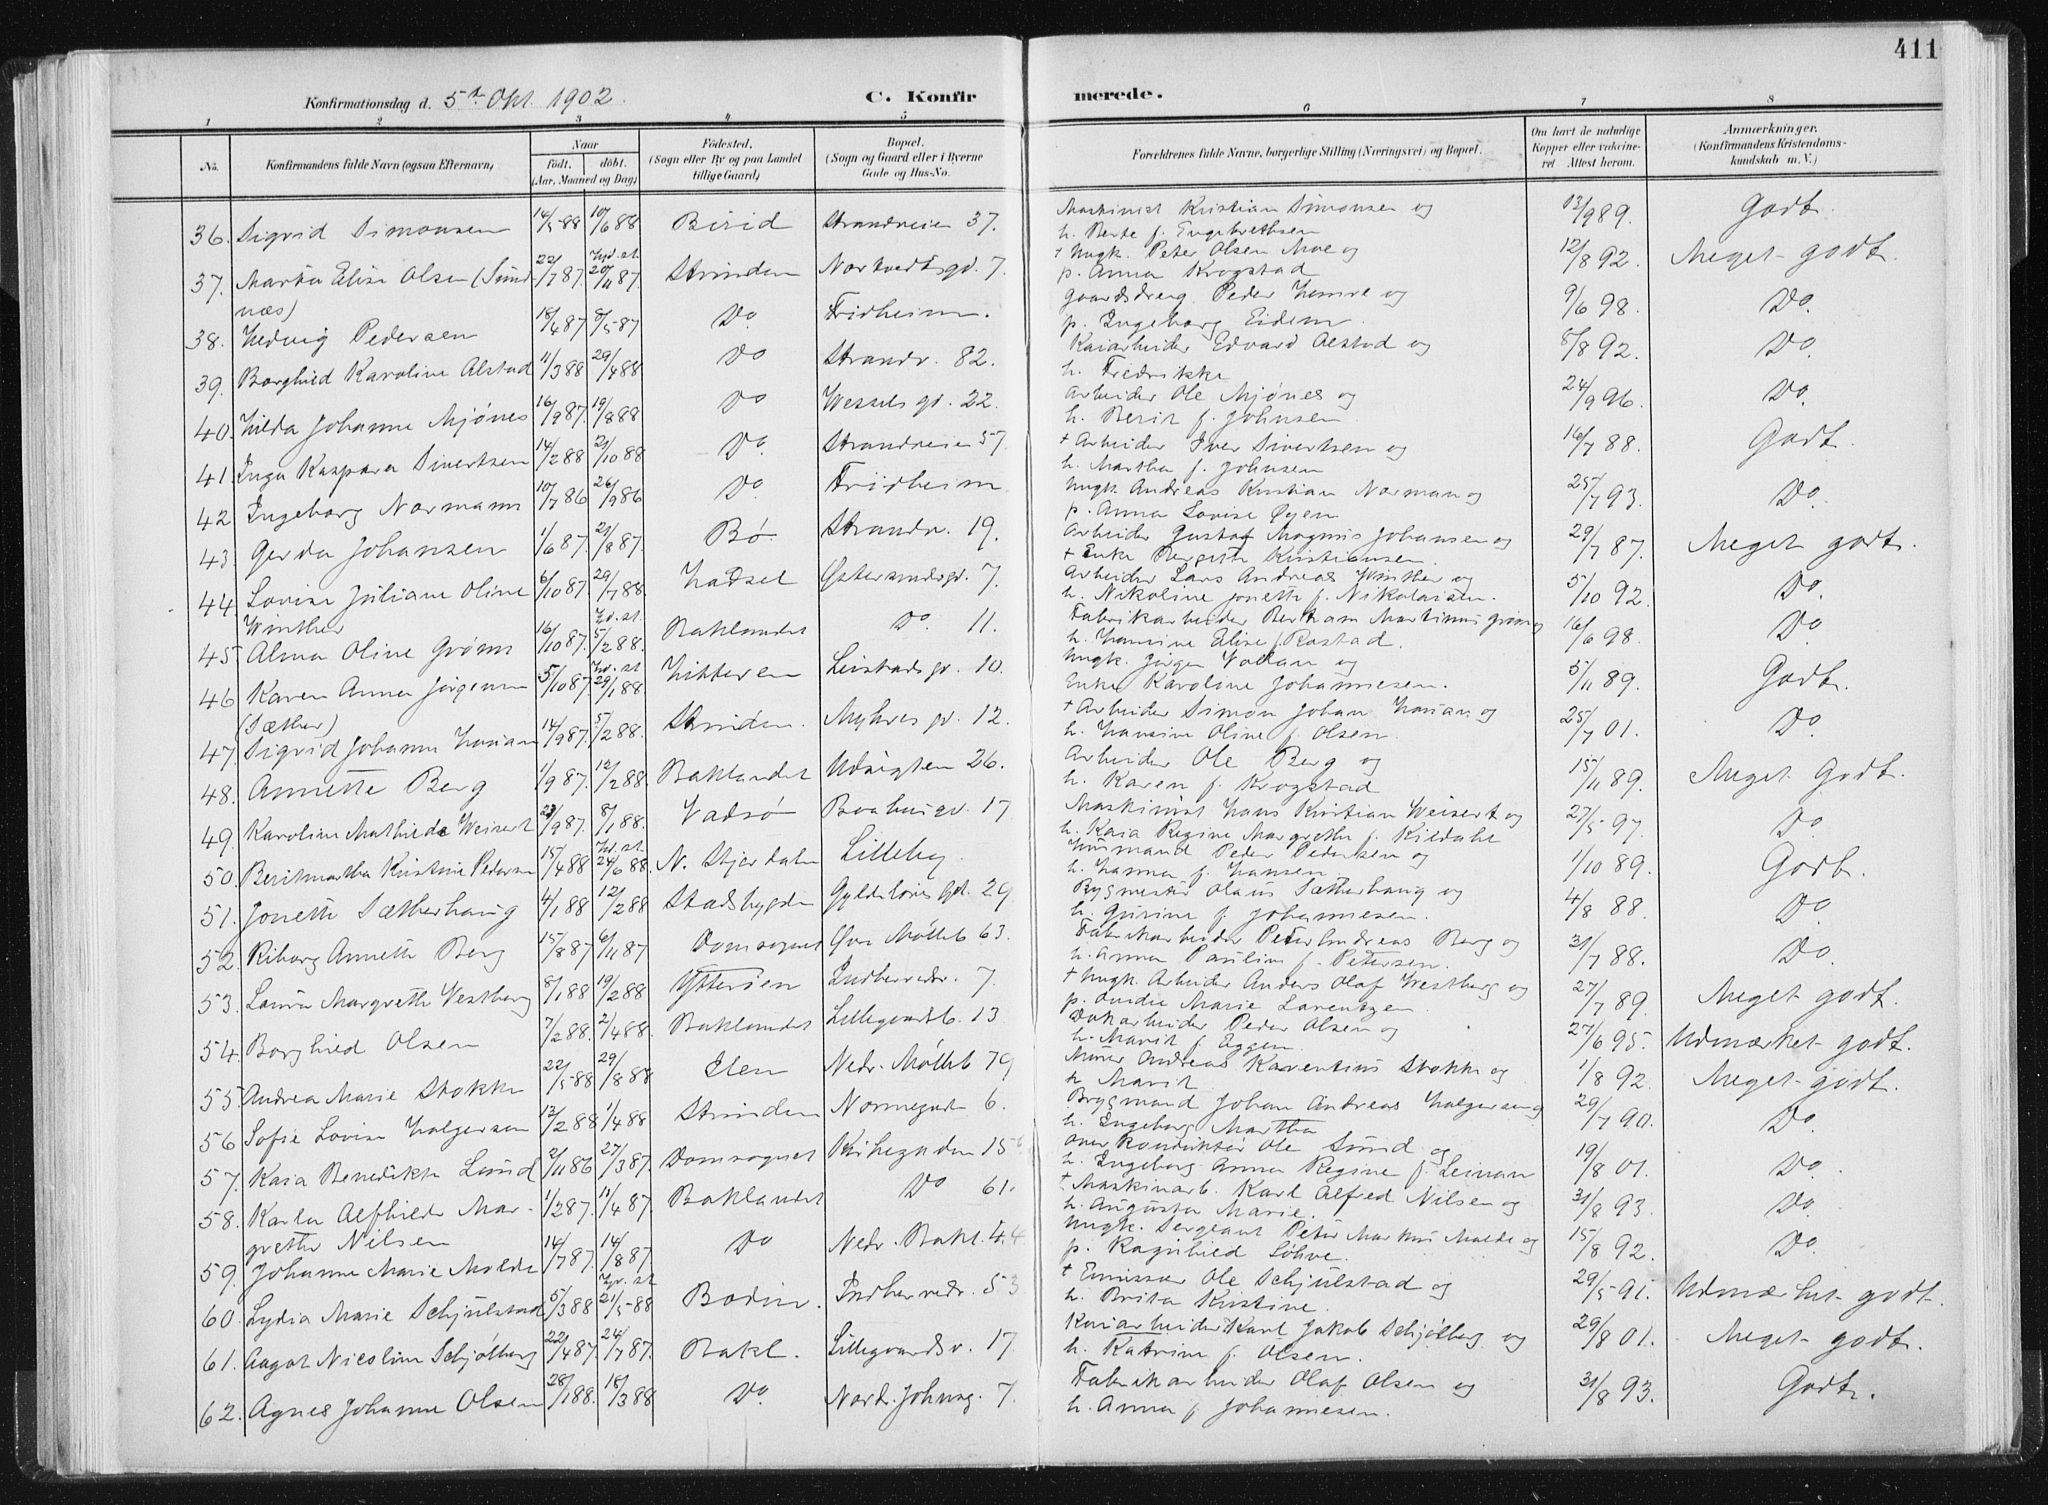 411
Konfirmationsdag d. 5te Okt. 1902. C. Konfirmerede.
1 2 3 4 5 6 7 8
No. Konfirmandens fulde Navn (ogsaa Efternavn) Naar født, døbt. (Aar, Maaned og Dag) Fødested. (Sogn eller By og paa Landet tillige Gaard) Bopæl. (Sogn og Gaard eller i Byerne Gade og Hus-No. Forældrenes fulde Navne, borgerlige Stilling (Næringsvei) og Bopæl. Om havt de naturlige Kopper eller vakcineret Attest herom. Anmærkninger. (Konfirmandens Kristendomskundskab m. V.)
36. Sigrid Simonsen 14/5 88 10/6 88 Birid Strandveien 37. Maskinist Kristian Simonsen og h. Berte f. Engebrethsen 13/9 89. Godt.
37. Marta Elise Olsen (Sundnæs) 22/7 87. Hjd. st. 20/11 87. Strinden Nortvedtsgd. 7. + Ungk. Peter Olsen Moe og p. Anna Krogstad 12/8 92. Meget godt.
38. Hedvig Pedersen 18/4 87 8/5 87 Do Fridheim. Gaardsdreng Peder Hamre og p. Ingeborg Eidem. 9/6 98. Do.
39. Borghild Karoline Alstad 11/3 88 29/4 88 Do Strandv. 82. Kaiarbeider Edvard Alstad og h. Fredrikke 8/8 92. Do.
40. Hilda Johanne Mjønes 16/9 87. 19/8 88 Do Wessels gd. 22. Arbeider Ole Mjønes og h. Berit f. Johnsen. 24/9 96. Do.
41. Inga Kaspara Sivertsen 14/2 88 21/10 88 Do. Strandveien 57. + Arbeider Iver Sivertsen og h. Martha f. Johnsen 16/7 88. Godt.
42. Ingeborg Normann 10/7 86 26/9 86 Do Fridheim Ungk. Andreas Kristian Norman og p. Anna Lovise Øyen 25/7 93. Do.
43 Gerda Johansen 1/6 87. 21/8 87. Bø. Strandv. 19. Arbeider Gustaf Magnus Johansen og + Enke Bergitte Kristiansen. 29/7 87. Meget godt.
44. Lovise Juliane Oline Winther 6/10 87 29/7 88. Hadsel Østersundsgd. 7. Arbeider Lars Andreas Winther og h. Nikoline Jonette f. Nikolaisen. 5/10 92. Do.
45. Alma Oline Grønn 16/10 87. Hd. st. 5/2 88. Baklandet Do. 11. Fabrikarbeider Bertham Martinus Grønn og h. Hansine Elise f. Rostad. 16/6 98. Do
46 Karen Anna Jørgensen (Sæther) 5/10 87 Hjd. st 29/1 88. Hitteren Leistadsgd. 10. Ungk. Jørgen Vollan og Enke Karoline Johannesen. 5/11 89. Godt.
47. Sigrid Johanne Hanian 14/9 87. 5/2 88. Strinden. Myhres gd. 12. + Arbeider Simon Johan Hanian og h. Hansine Oline f. Olsen. 25/7 01. Do.
48. Annette Berg 1/9 87. 12/2 88. Baklandet Udsigten 26. Arbeider Ole Berg og h. Karen f. Krogstad 15/11 89. Meget Godt.
49. Karoline Mathilde Weisert 23/9 87. 8/1 88. Vadsø Baahusgd. 17 Maskinist Hans Kristian Weisert og h. Kaia Regine Margrethe f. Kildahl 27/5 97. Do
50. Beritmartha Kristine Pedersen 15/4 88 Hd. st 24/6 88. N. Stjørdalen Lilleby. Husmand Peder Pedersen og h. Hanna f. Hansen 1/10 89. Godt.
51. Jonette Sætherhaug 4/1 88 12/2 88 Stadsbygden Gyldeløves Gd. 29 Bygmester Olaus Sætherhaug og h. Gurine f. Johannesen. 4/8 88. Do.
52. Riborg Annette Berg 15/8 87 6/11 87 Domsognet Øvr Mølleb 63. Fabrikarbeider Peter Andreas Berg og h. Anna Pauline f. Petersen. 31/7 88. Do
53. Laura Margrethe Vestberg 8/1 88 19/2 88 Ytterøen Indherredv. 7. + Ungk. Arbeider Anders Olaf Westberg og p. Ovidie Marie Larentzen 27/7 89. Meget godt.
54. Borghild Olsen 7/2 88. 2/4 88. Baklandet Lillegaardsb. 13 Dokarbeider Peder Olsen og h. Marit f. Eggen 27/6 95. Udmærket godt.
55. Andrea Marie Stokke 22/5 88 29/8 88 Ilen Nedr. Mølleb 79 Murer Andreas Laurentius Stokke og h. Marit 1/8 92. Meget godt.
56 Sofie Lovise Holgersen 13/2 88 1/4 88 Strinden Nonnegaden 6. Brygmand Johan Andreas Holgersen og h. Ingeborg Martha 29/7 90. Do.
57. Kaia Benedikte Lund 2/11 86 27/3 87. Domsognet Kirkegaden 15 Overkonduktør Ole Lund og h. Ingeborg Anna Regine f. Leinan 19/8 01. Do.
58. Karla Alfhilde Margrethe Nilsen 1/2 87. 11/4 87. Baklandet Do 61. + Maskinarb. Karl Alfred Nilsen og h. Augusta Marie. 31/8 93. Do.
59. Johanne Marie Molde 14/7 87. 14/8 87 Do Nedr. Bakl. 44 Ungk. Sergeant Peter Markus Molde og p. Ragnhild Løhve. 15/8 92. Do.
60. Lydia Marie Schjulstad 5/3 88 Hjd. st 21/5 88 Bodin. Indherredv. 53 + Emissær Ole Schjulstad og h. Brita Kristine. 29/5 91. Udmærket godt.
61. Aagot Nicoline Schjølberg 22/4 87. 24/7 87. Bakl. Lillegaardsv. 17. Kaiarbeider Karl Jakob Schjølberg og h. Katrine f. Olsen. 29/8 01. Meget godt.
62. Agnes Johanne Olsen 28/1 88. 18/3 88 Do. Nordr. Johnsg. 7. Fabrikarbeider Olaf Olsen og h. Anna f. Johannesen. 31/8 93. Godt.